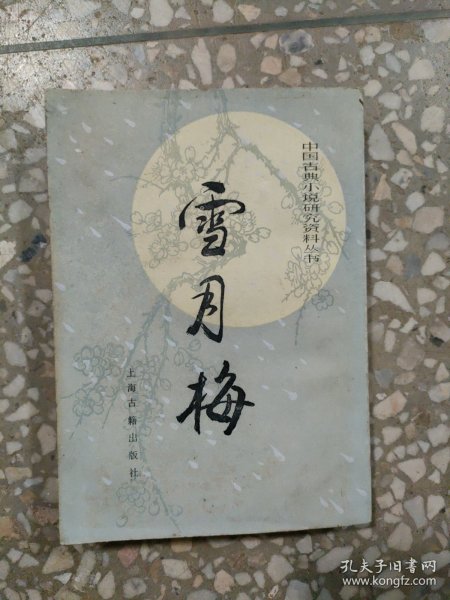 中国古典小说研究资料丛书
雪月梅
上海古籍出版社
孔夫子旧书网
www.kongfz.com